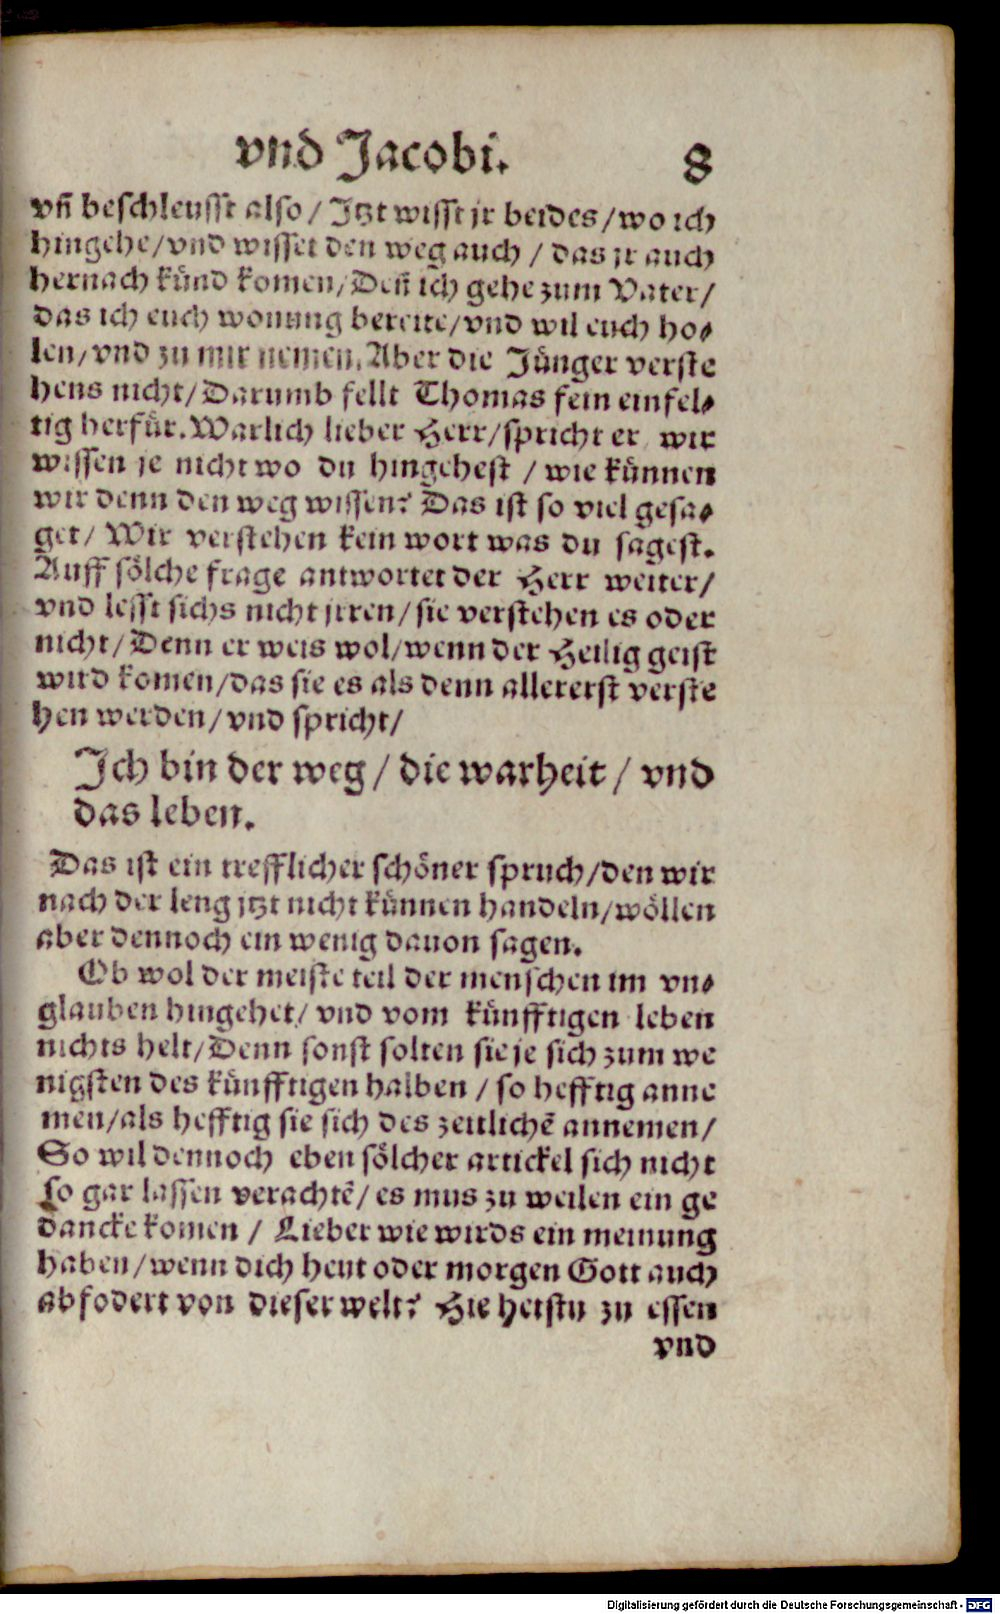 vnd Jacobi. 8
vn̄ beschleusst also / Jtzt wisst jr beides / wo ich
hingehe / vnd wisset den weg auch / das jr auch
hernach künd komen / Den̄ ich gehe zum Vater /
das ich euch wonung bereite / vnd wil euch ho⸗
len / vnd zu mir nemen. Aber die Jünger verste
hens nicht / Darumb fellt Thomas fein einfel⸗
tig herfür. Warlich lieber Herr / spricht er wir
wissen je nicht wo du hingehest / wie künnen
wir denn den weg wissen? Das ist so viel gesa⸗
get / Wir verstehen kein wort was du sagest.
Auff sölche frage antwortet der Herr weiter /
vnd lesst sichs nicht jrren / sie verstehen es oder
nicht / Denn er weis wol / wenn der Heilig geist
wird komen / das sie es als denn allererst verste
hen werden / vnd spricht /
Jch bin der weg / die warheit / vnd
das leben.
Das ist ein trefflicher schöner spruch / den wir
nach der leng jtzt nicht künnen handeln / wöllen
aber dennoch ein wenig dauon sagen.
Ob wol der meiste teil der menschen im vn⸗
glauben hingehet / vnd vom künfftigen leben
nichts helt / Denn sonst solten sie je sich zum we
nigsten des künfftigen halben / so hefftig anne
men / als hefftig sie sich des zeitlichē annemen /
So wil dennoch eben sölcher artickel sich nicht
so gar lassen verachtē / es mus zu weilen ein ge
dancke komen / Lieber wie wirds ein meinung
haben / wenn dich heut oder morgen Gott auch
abfodert von dieser welt? Hie heistu zu essen
vnd
Digitalisierung gefördert durch die Deutsche Forschungsgemeinschaft - DFG